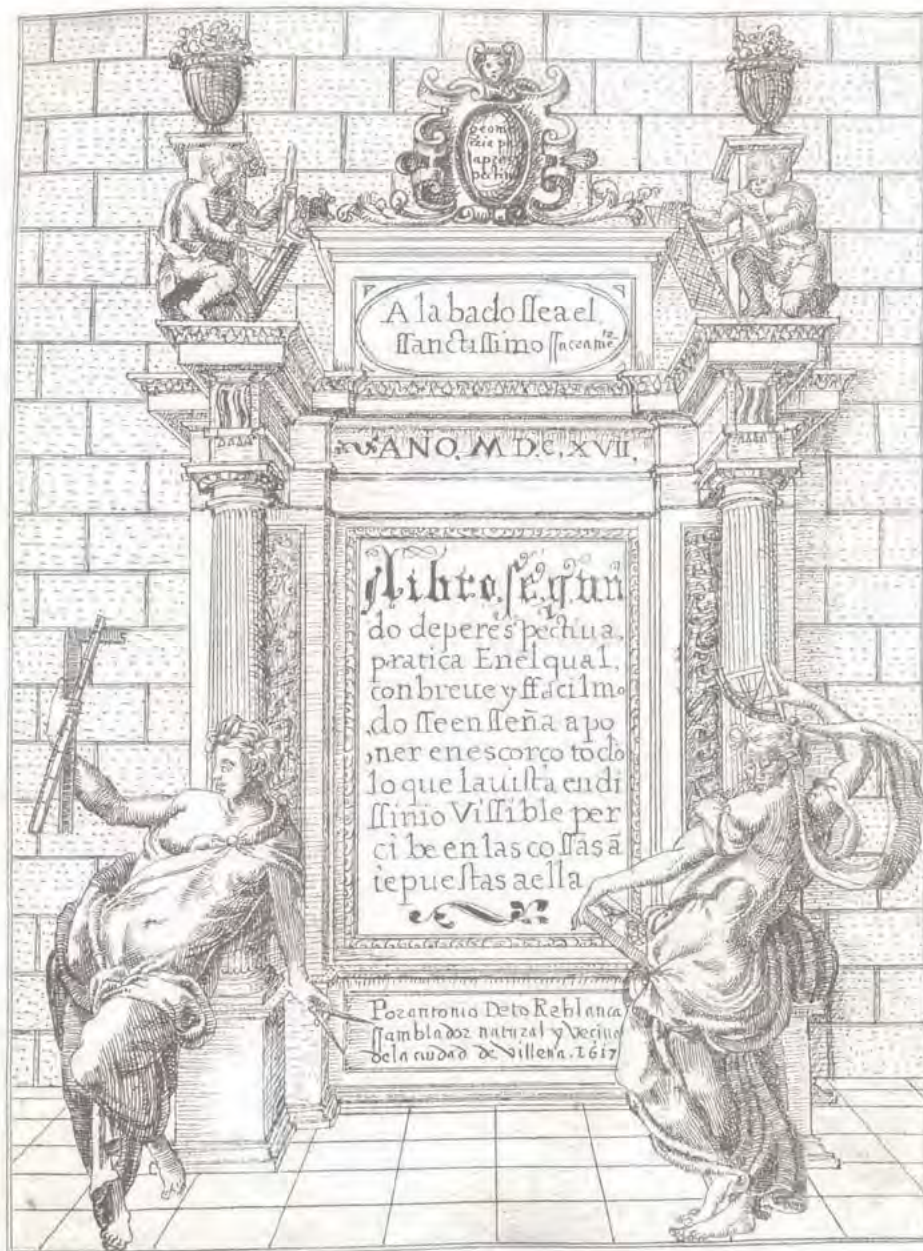 geome
tria pa
a pros
pectiua
Alabado ſſea el
ſſanctiſſimo ſſacramē.to
ANO. M D.C. XVII.
Libro. ſegun
do de perespectiua,
pratica Enel qual,
con breue y ffacil mo
do ſſe enſſeña a po
ner en escorço todo
lo que la uiſta en di
ſſinio Viſſible per
cibe en las coſſas ā
tepueſtas a ella
Por antonio De to Reblanca
ſſamblador natural y Vecino
de la ciudad de Villena. 1617